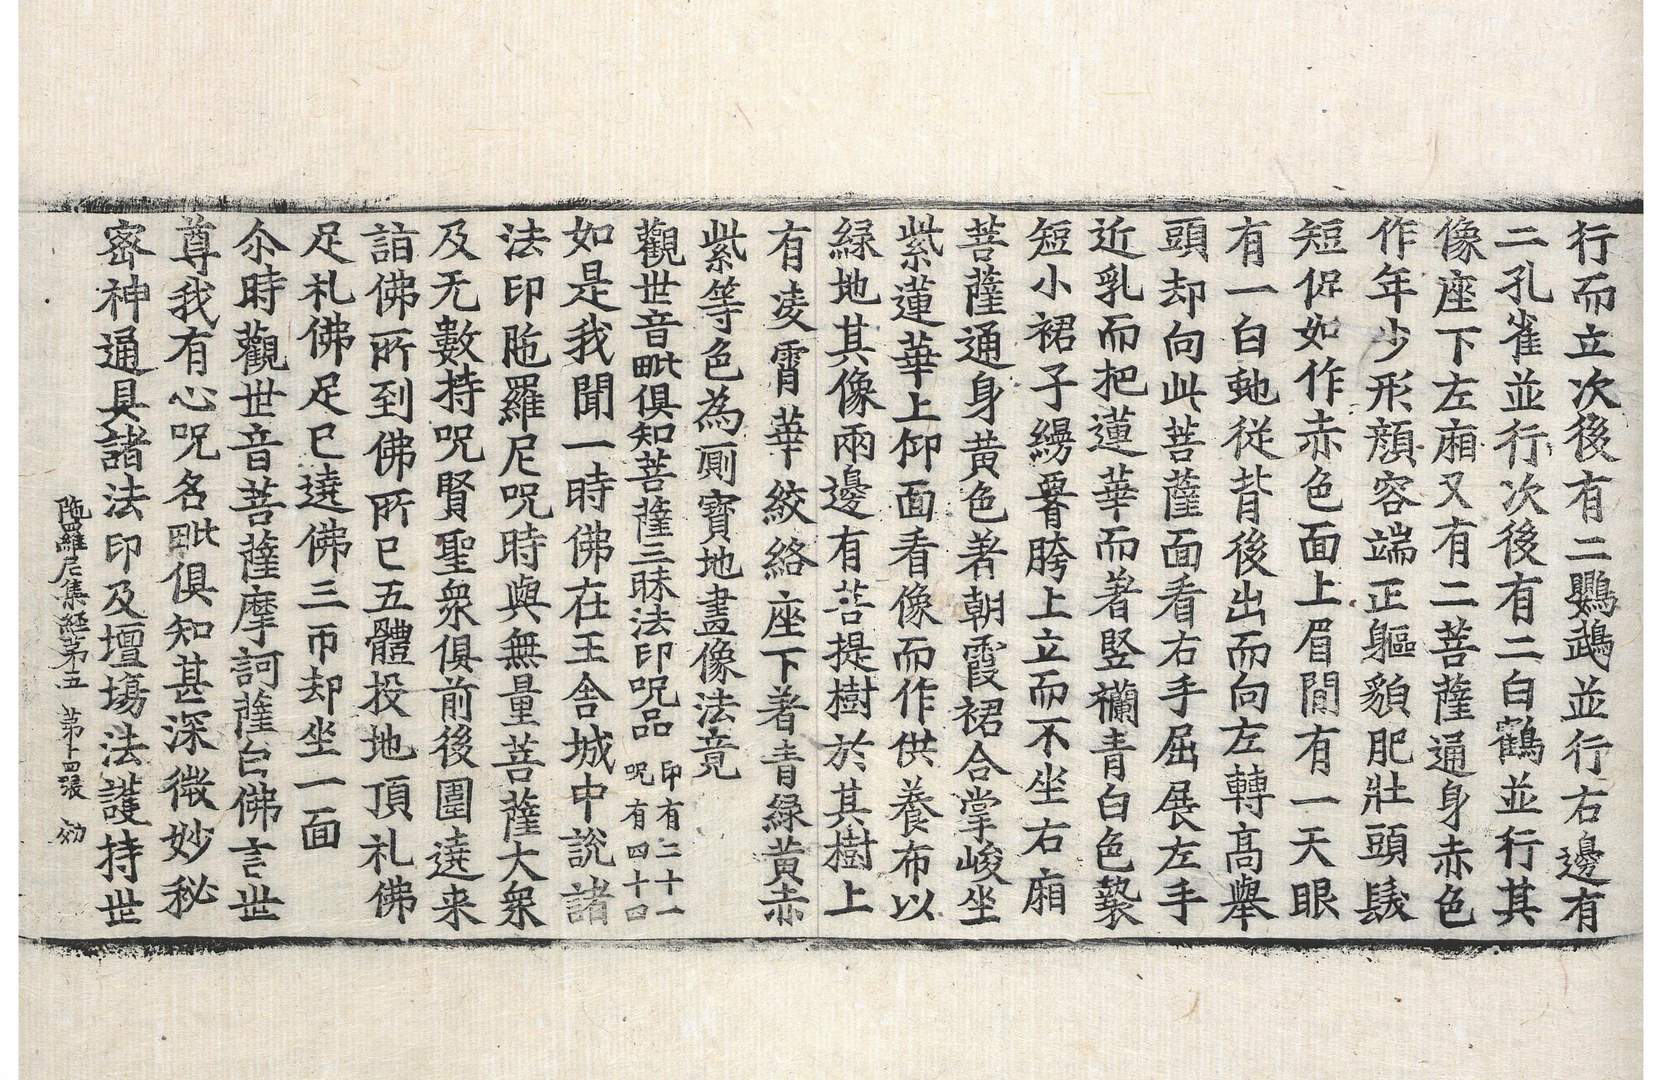 行而立次後有二鸚鵡並行右邊有
二孔雀並行次後有二白鶴並行其
像座下左廂又有二菩薩通身赤色
作年少形顔容端正軀貌肥壯頭髮
短促如作赤色面上眉間有一天眼
有一白虵從背後出而向左轉高舉
頭却向此菩薩面看右手屈展左手
近乳而把蓮華而著竪襴青白色褺
短小裙子縵署胯上立而不坐右廂
菩薩通身黃色著朝霞裙合掌峻坐
紫蓮華上仰面看像而作供養布以
緑地其像兩邊有菩提樹於其樹上
有凌霄華絞絡座下著青緑黃赤
紫等色為厠寳地畫像法竟
觀世音毗俱知菩薩三昧法印呪品 印有二十一 呪有四十四
如是我聞一時佛在王舎城中說諸
法印陁羅尼呪時與無量菩薩大衆
及无數持呪賢聖衆俱前後圍遶来
詣佛所到佛所已五體投地頂礼佛
足礼佛足已遶佛三帀却坐一面
尒時觀世音菩薩摩訶薩白佛言世
尊我有心呪名毗俱知甚深微妙秘
密神通具諸法印及壇塲法護持世
陁羅尼集経第五 第十四張 効